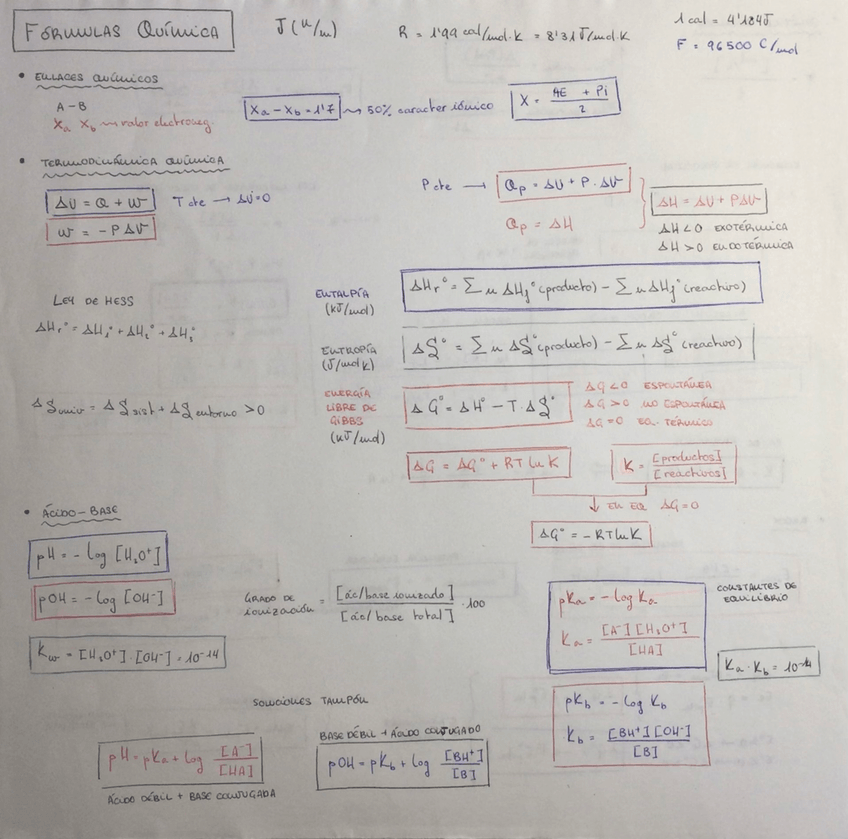 FÓRMULAS QUÍMICA
J (n/m)
R = 1'99 cal/mol·K = 8'31 J/mol·K
1 cal = 4'184J
F = 96500 C/mol
• ENLACES QUÍMICOS
A - B
Xa Xb → valor electroneg.
Xa - Xb = 1'7 → 50% caracter iónico
X = (AE + PI)/2
• TERMODINÁMICA QUÍMICA
ΔU = Q + W
T cte → ΔU = 0
W = - P ΔV
P cte → Qp = ΔU + P · ΔV
Qp = ΔH
ΔH = ΔU + PΔV
ΔH < 0 EXOTÉRMICA
ΔH > 0 ENDOTÉRMICA
LEY DE HESS
ΔHr° = ΔH1° + ΔH2° + ΔH3°
ENTALPÍA
(kJ/mol)
ΔHr° = Σ n ΔHf° (producto) - Σ n ΔHf° (reactivo)
ENTROPÍA
(J/molK)
ΔS° = Σ n ΔS° (producto) - Σ n ΔS° (reactivo)
ΔSuniv = ΔSsist + ΔSentorno > 0
ENERGÍA
LIBRE DE
GIBBS
(kJ/mol)
ΔG° = ΔH° - T · ΔS°
ΔG < 0 ESPONTÁNEA
ΔG > 0 NO ESPONTÁNEA
ΔG = 0 EQ. TÉRMICO
ΔG = ΔG° + RT ln K
K = [productos]/[reactivos]
EN EQ ΔG = 0
ΔG° = - RT ln K
• ÁCIDO-BASE
pH = - log [H3O+]
pOH = - log [OH-]
Kw = [H3O+] · [OH-] = 10-14
GRADO DE
ionización = [ác/base ionizado]/[ác/base total] · 100
pKa = - log Ka
Ka = [A-][H3O+]/[HA]
CONSTANTES DE
EQUILIBRIO
Ka · Kb = 10-14
pKb = - log Kb
Kb = [BH+][OH-]/[B]
SOLUCIONES TAMPÓN
pH = pKa + log [A-]/[HA]
ÁCIDO DÉBIL + BASE CONJUGADA
BASE DÉBIL + ÁCIDO CONJUGADO
pOH = pKb + log [BH+]/[B]